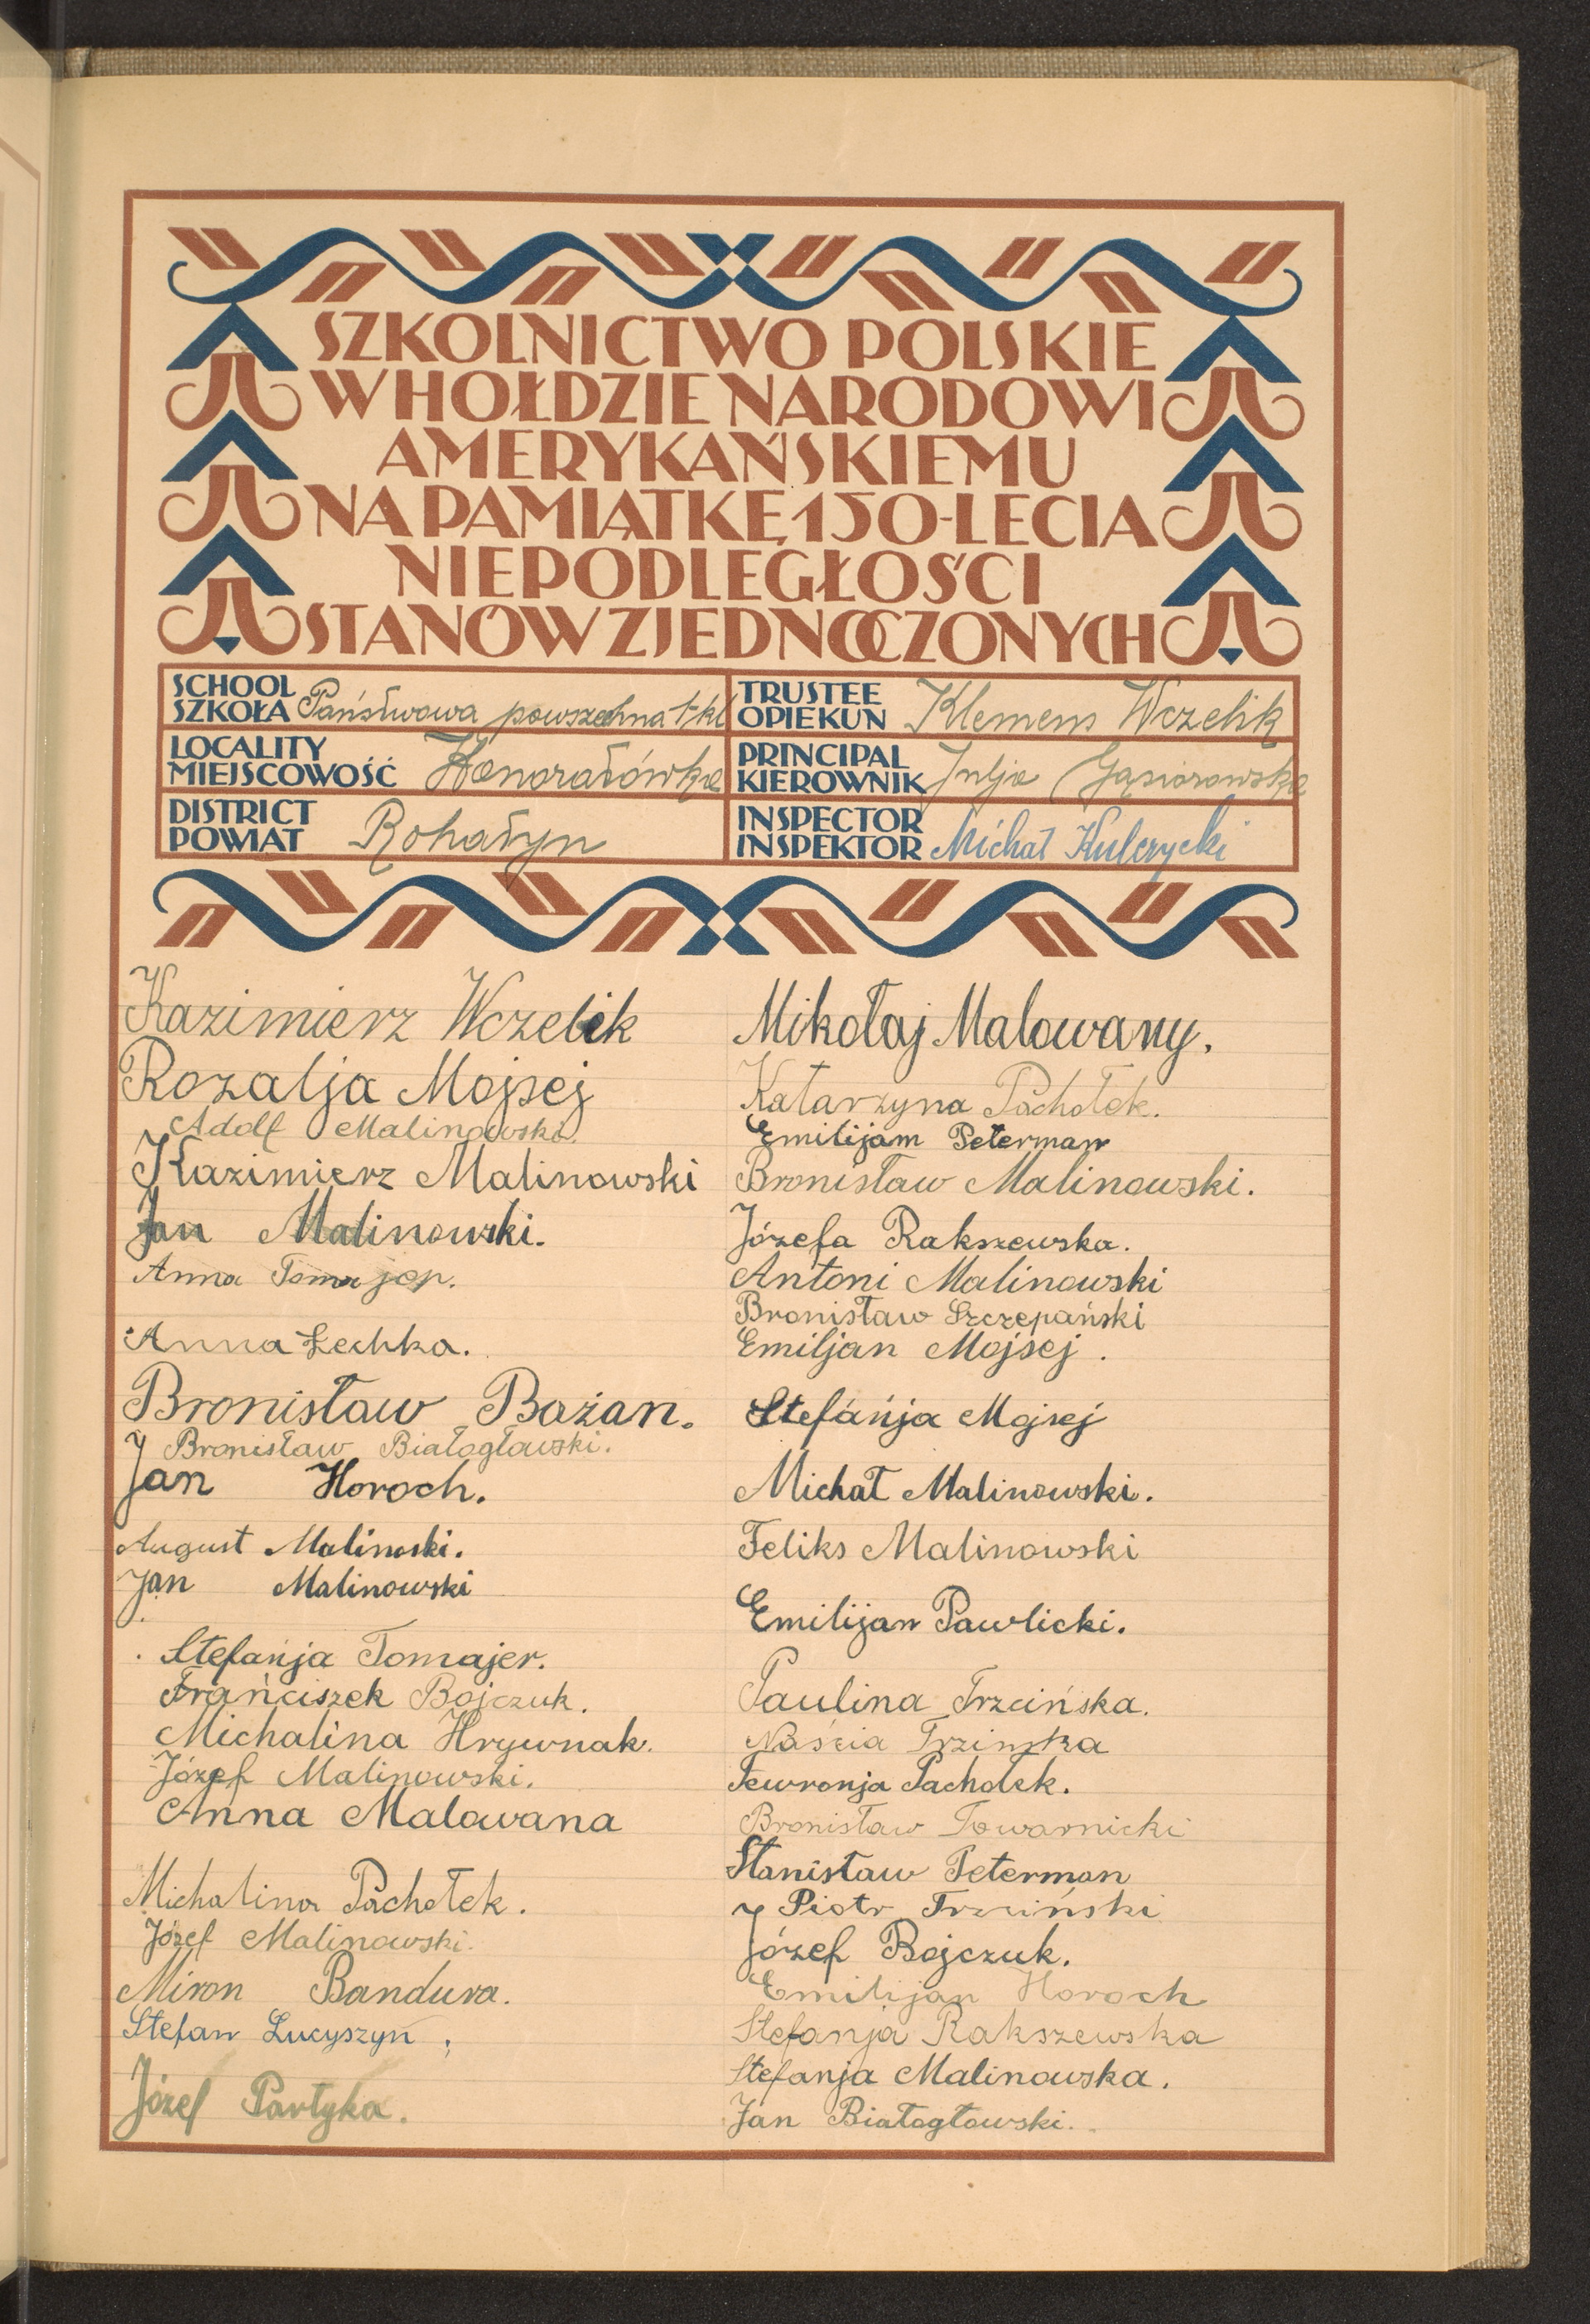 SZKOLNICTWO POLSKIE
W HOŁDZIE NARODOWI
AMERYKAŃSKIEMU
NA PAMIĄTKĘ 150-LECIA
NIEPODLEGŁOŚCI
STANÓW ZJEDNOCZONYCH
SCHOOL
SZKOŁA Państwowa powszechna 1-kl
LOCALITY
MIEJSCOWOŚĆ Honoratówka
DISTRICT
POWIAT Rohatyn
TRUSTEE
OPIEKUN Klemens Wczelik
PRINCIPAL
KIEROWNIK Julja Gąsiorowska
INSPECTOR
INSPEKTOR Michał Kulczycki
Kazimierz Wczelik
Rozalja Mojsej
Adolf Malinowski.
Kazimierz Malinowski
Jan Malinowski.
Anna
Anna Lechka.
Bronisław Bażan.
Bronisław Białogłowski.
Jan Horoch.
August Malinoski.
Jan Malinowski
Stefanja Tomajer.
Frańciszek Bojczuk.
Michalina Hrywnak.
Józef Malinowski.
Anna Malowana
Michalina Pachołek.
Józef Malinowski.
Miron Bandura.
Stefan Łucyszyn.
Józef Partyka.
Mikołaj Malowany.
Katarzyna Pachołek.
Emilijam Peterman
Bronisław Malinowski.
Józefa Rakszewska.
Antoni Malinowski
Bronisław Szczepański
Emiljan Mojsej.
Stefańja Mojsej
Michał Malinowski.
Feliks Malinowski
Emilijan Pawlicki.
Paulina Trzcińska.
Naścia Trzinska
Fewronja Pachołek.
Bronisław Towarnicki
Stanisław Peterman
Piotr Trzciński
Józef Bojczuk.
Emilijan Horoch
Stefanja Rakszewska
Stefanja Malinowska.
Jan Białogłowski.